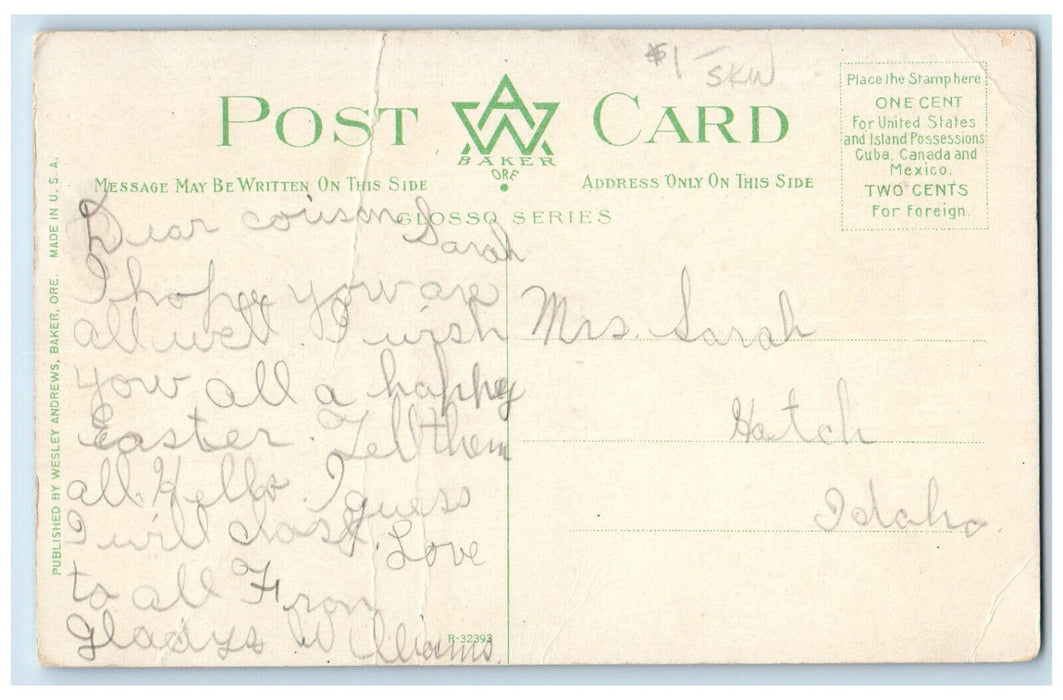 $1 SKW
POST CARD
AW
BAKER
ORE
MESSAGE MAY BE WRITTEN ON THIS SIDE
ADDRESS ONLY ON THIS SIDE
GLOSSO SERIES
Place the Stamp here
ONE CENT
For United States
and Island Possessions
Cuba, Canada and
Mexico.
TWO CENTS
For Foreign.
PUBLISHED BY WESLEY ANDREWS, BAKER, ORE. MADE IN U. S. A.
Dear couison
Sarah
I hope you are
all well. I wish
you all a happy
Easter. Tell them
all Hello. I guess
I will close. Love
to all From
Gladys Williams.
R-32393
Mrs. Sarah
Hatch
Idaho.